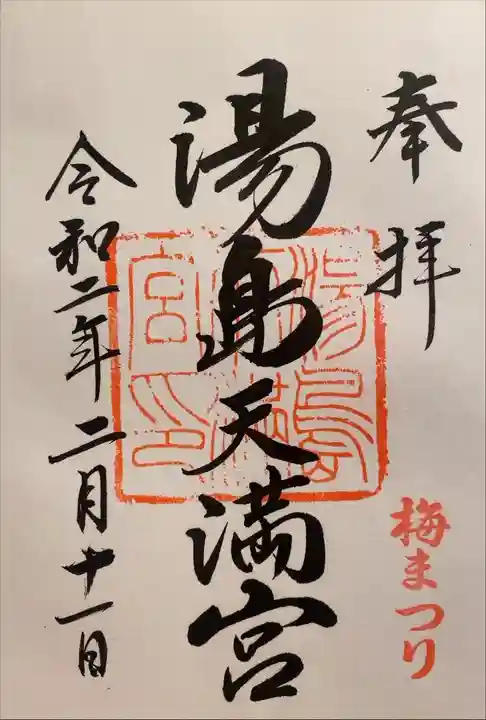 奉拝
梅まつり
湯島天満宮
湯島天満宮印
令和二年二月十一日